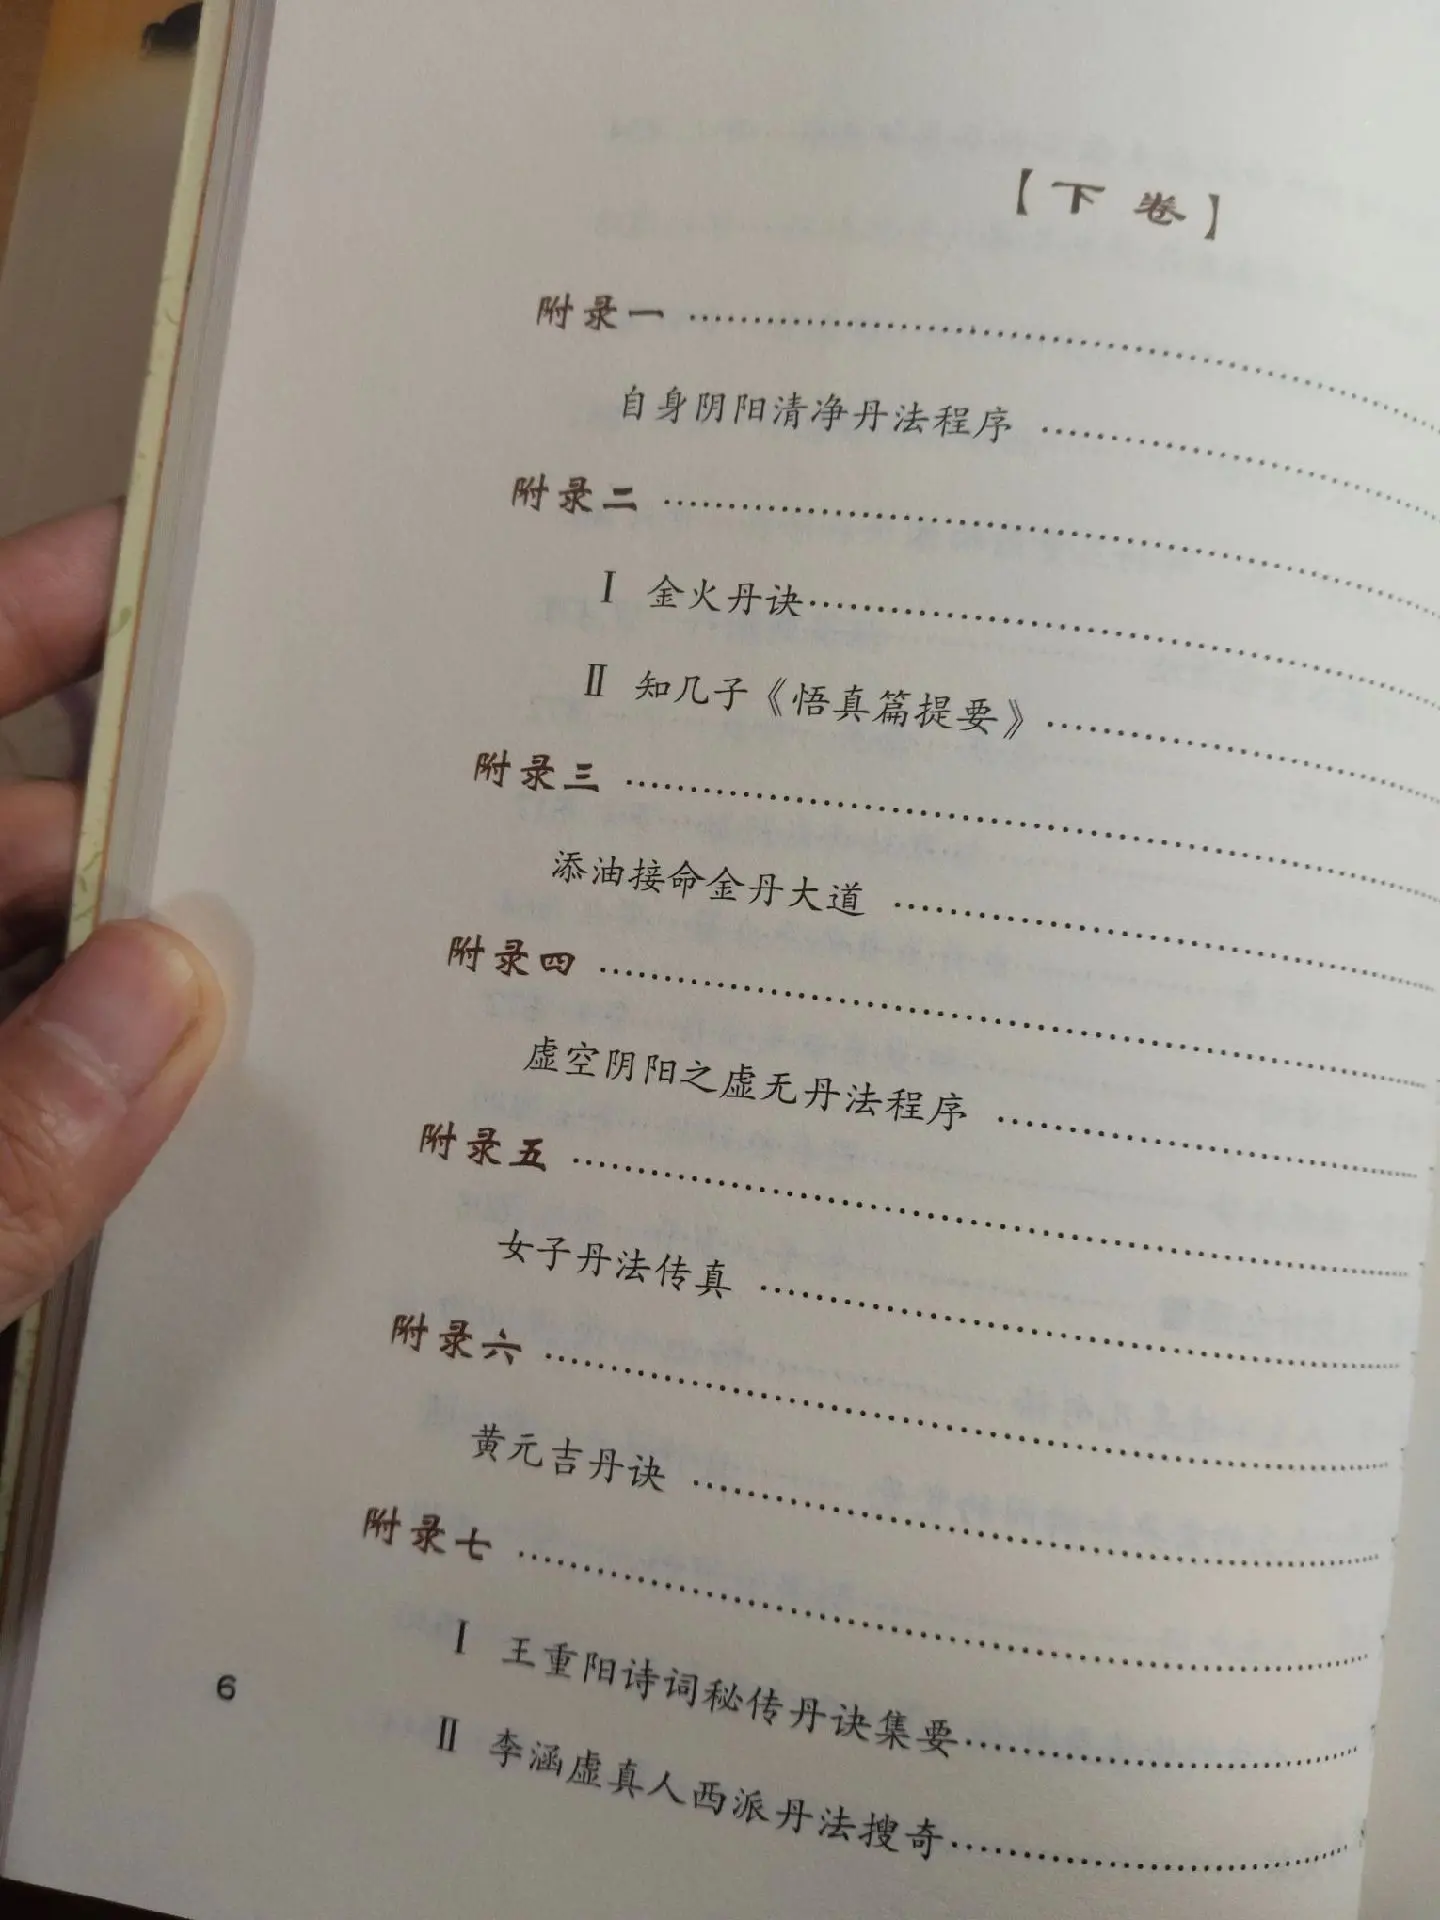 【下卷】
附录一
自身阴阳清净丹法程序
附录二
Ⅰ 金火丹诀
Ⅱ 知几子《悟真篇提要》
附录三
添油接命金丹大道
附录四
虚空阴阳之虚无丹法程序
附录五
女子丹法传真
附录六
黄元吉丹诀
附录七
Ⅰ 王重阳诗词秘传丹诀集要
Ⅱ 李涵虚真人西派丹法搜奇
6